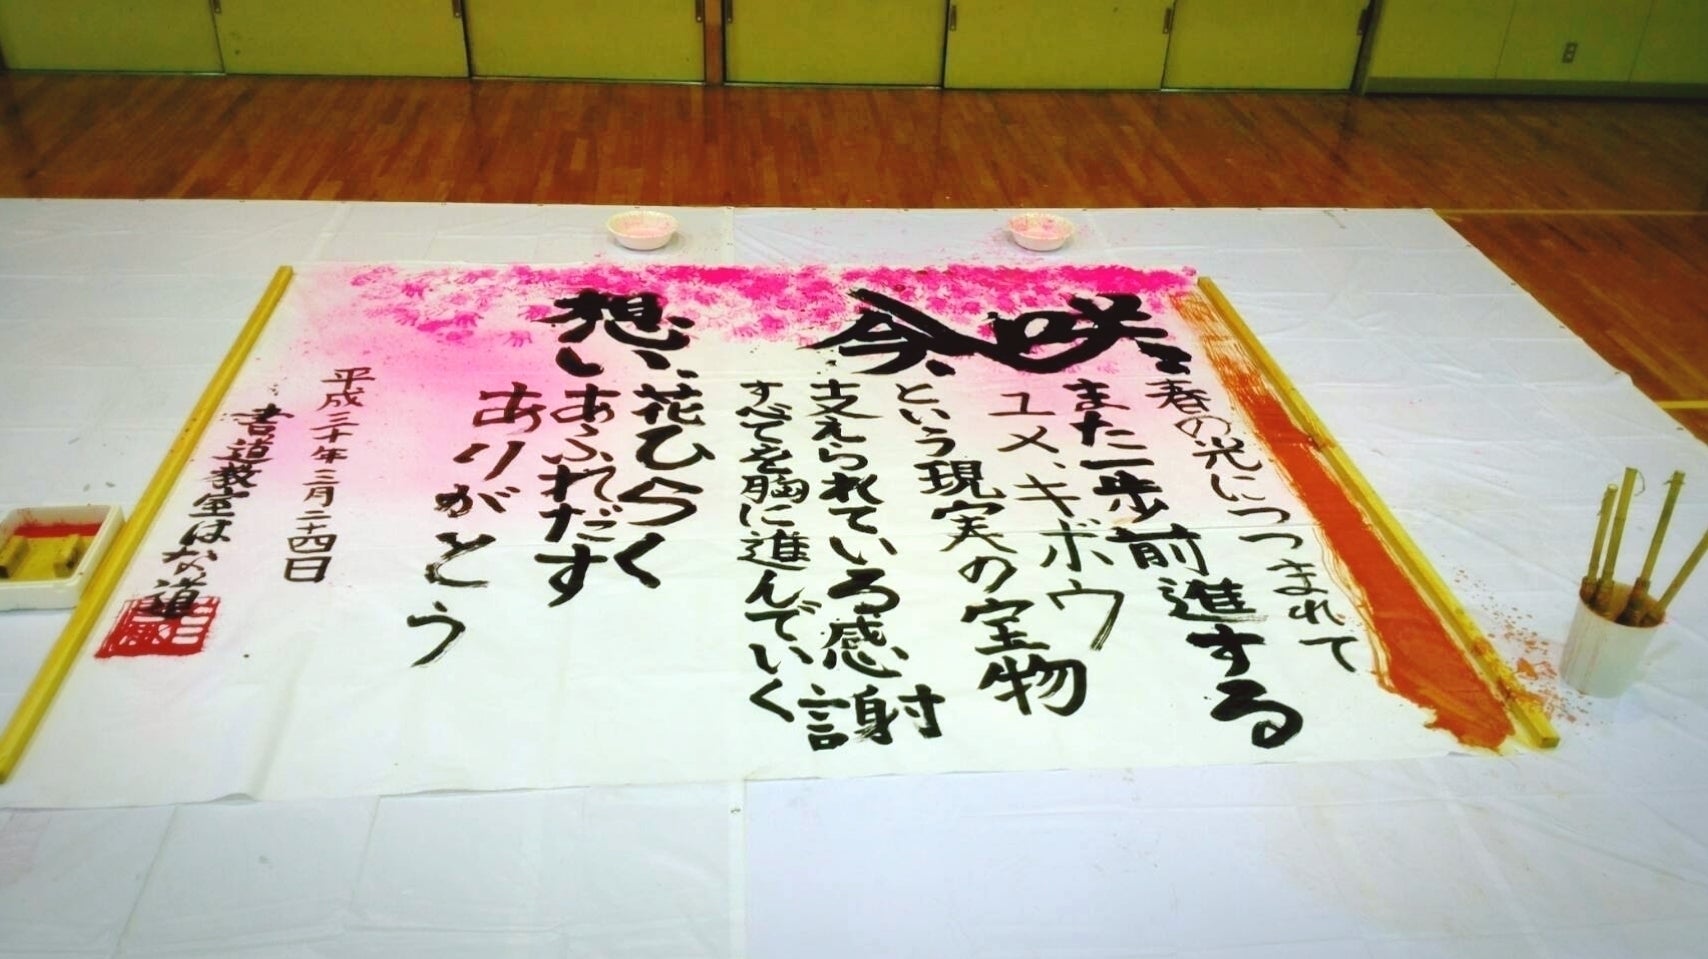 咲
春の光につつまれて
また一歩前進する
ユメ、キボウ
という現実の宝物
今、
支えられている感謝
すべてを胸に進んでいく
想い、
花ひらく
あふれだす
ありがとう
平成三十年三月二十四日
書道教室はな道